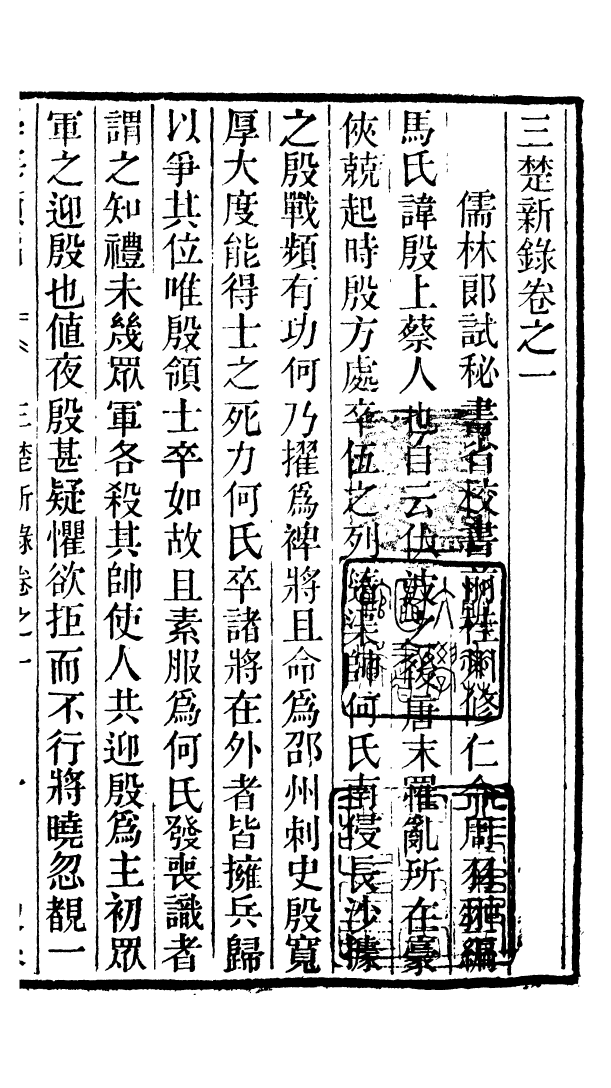 三楚新錄卷之一
儒林郎試秘書省校書前桂州修仁令周羽翀編
馬氏諱殷上蔡人也自云伏波之後唐末罹亂所在豪
俠兢起時殷方處卒伍之列隨渠帥何氏南侵長沙據
之殷戰頻有功何乃擢爲裨將且命爲邵州刺史殷寬
厚大度能得士之死力何氏卒諸將在外者皆擁兵歸
以爭其位唯殷領士卒如故且素服爲何氏發喪識者
謂之知禮未幾眾軍各殺其帥使人共迎殷爲主初眾
軍之迎殷也値夜殷甚疑懼欲拒而不行將曉忽覩一
三楚新錄卷之一